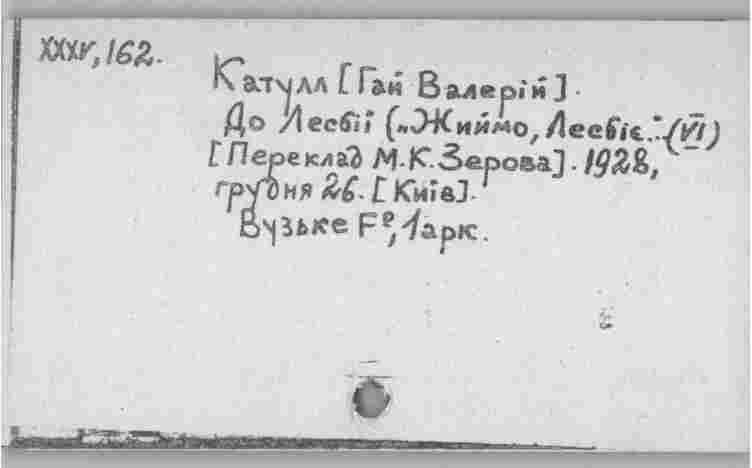 XXXV, 162.
Катулл [Гай Валерій].
До Лесбії („Жиймо, Лесбіє..." (VI)
[Переклад М.К. Зерова]. 1928,
грудня 26. [Київ].
Вузьке F°, 1 арк.